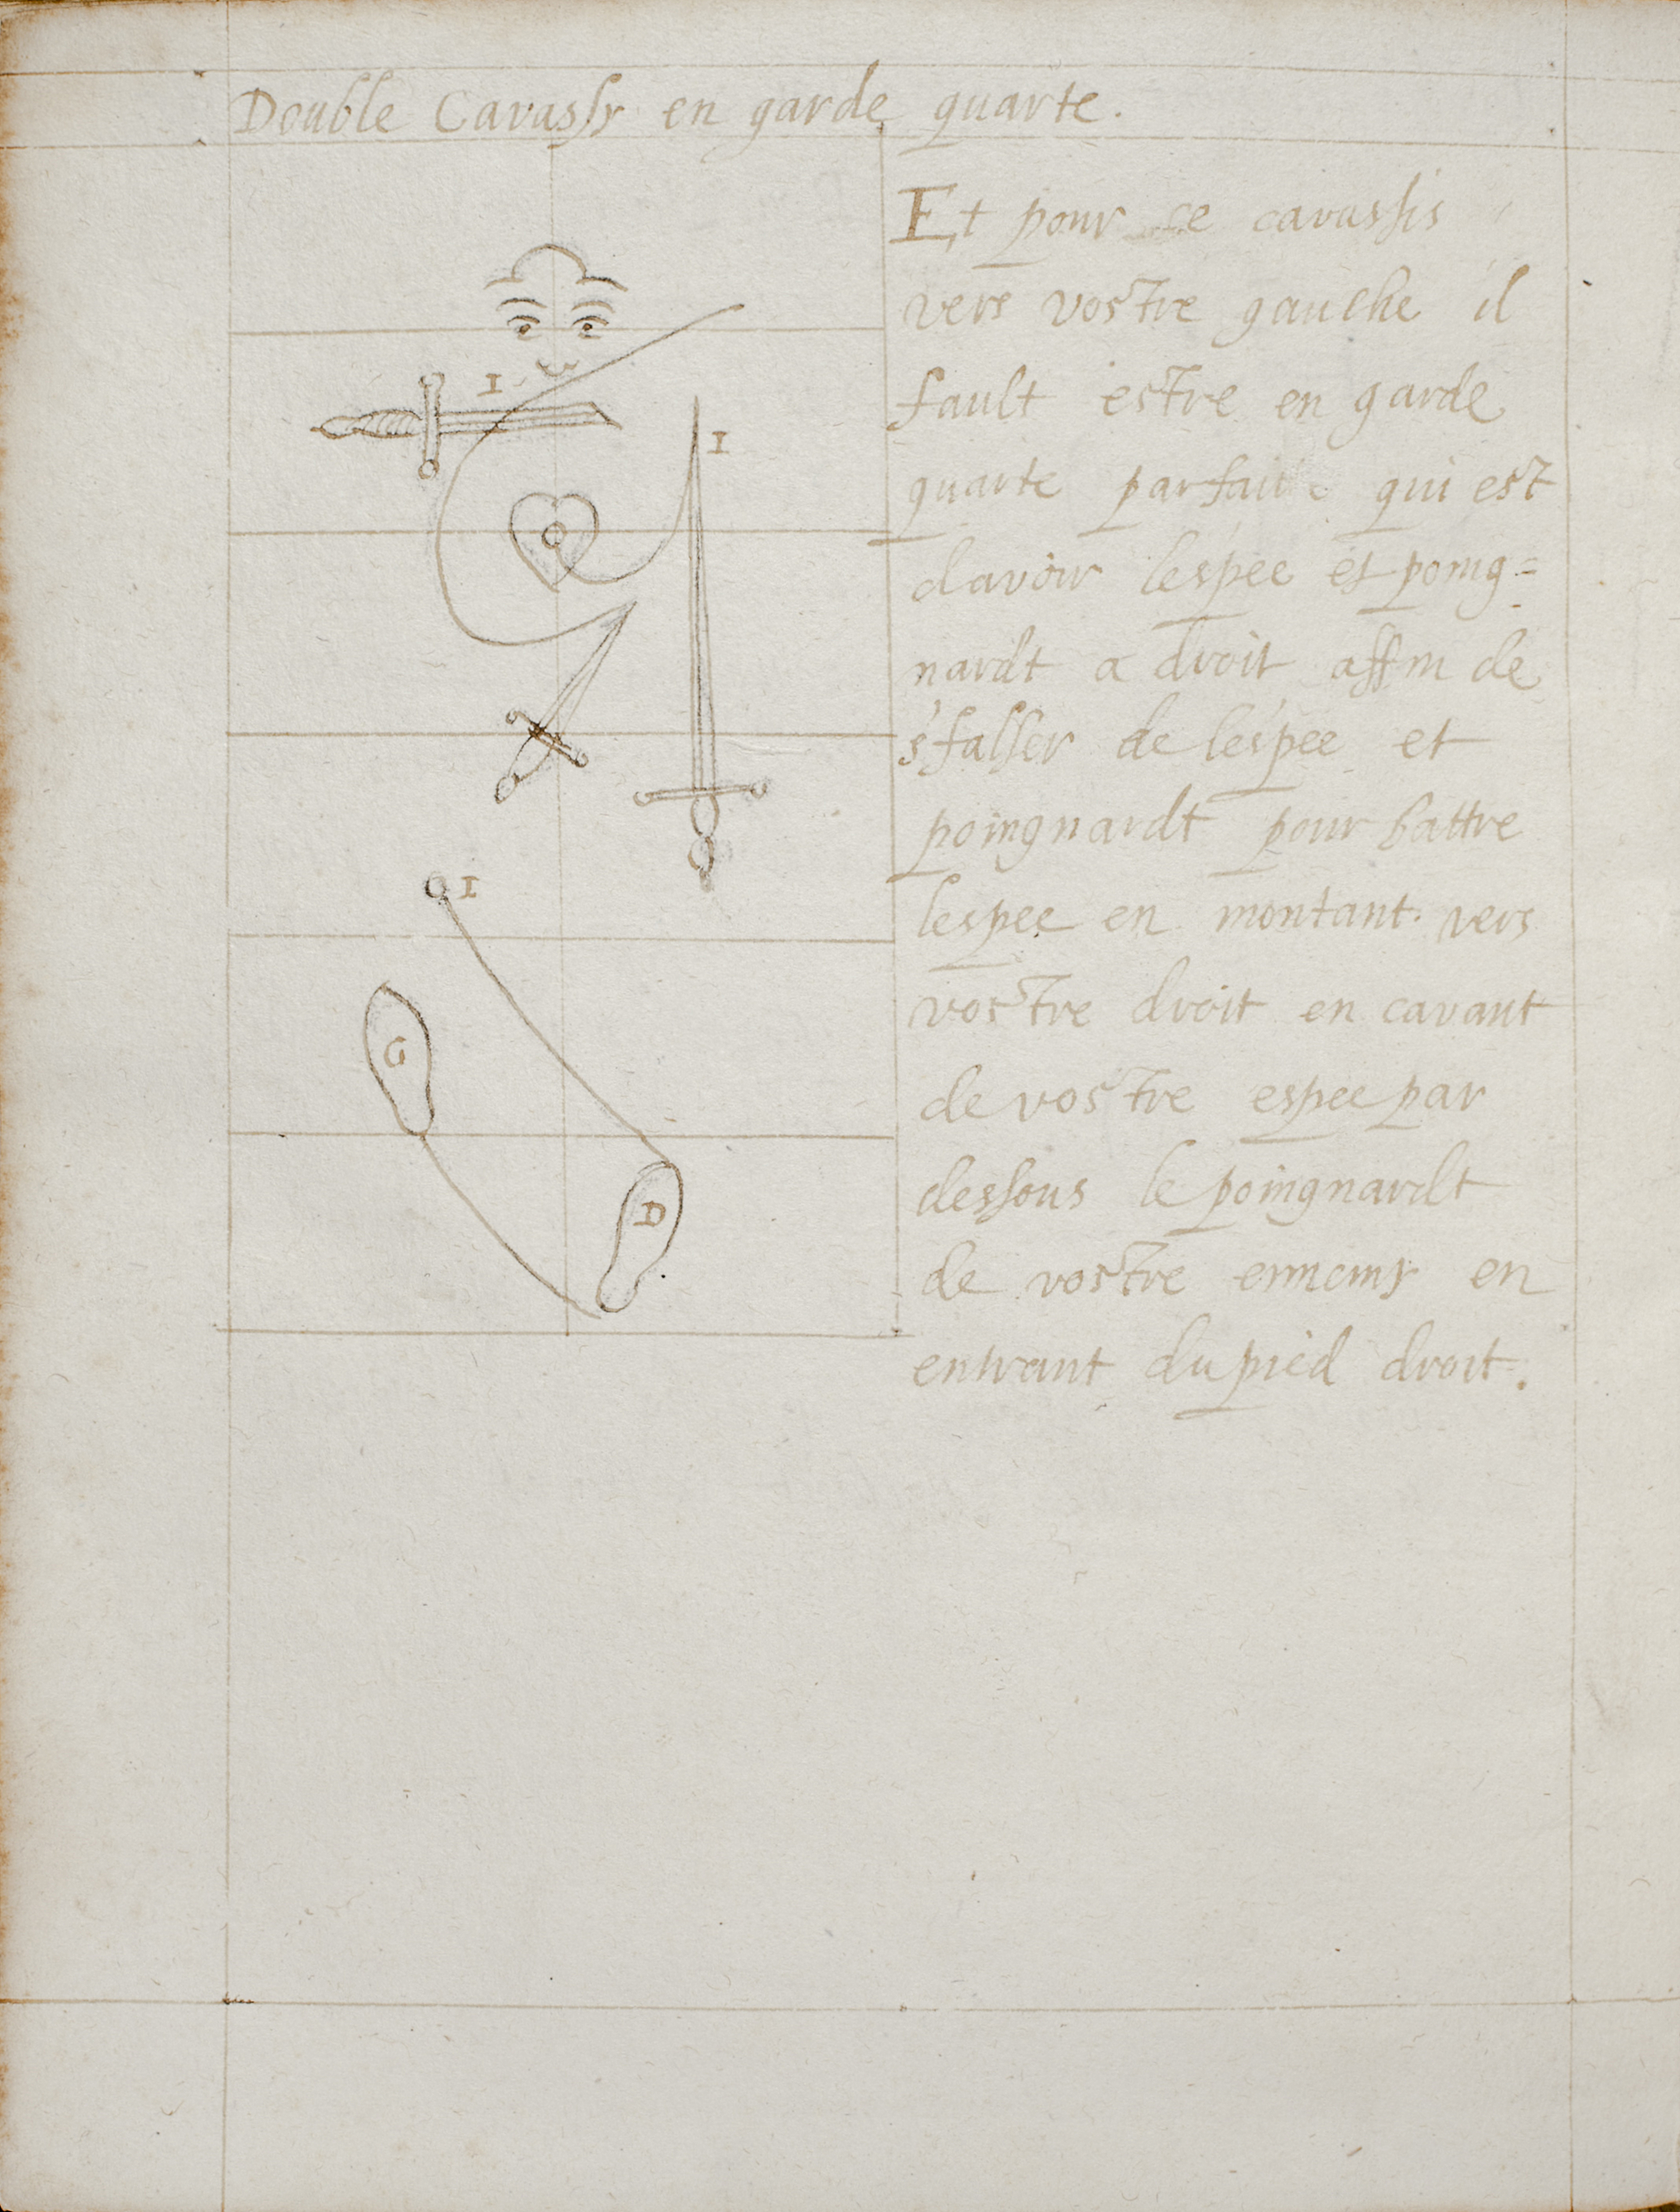 Double Cavassy en garde quarte.
Et pour ce cavassis
vers vostre gauche il
fault estre en garde
quarte parfaite qui est
davoir lespee et poing=
nardt a droit affin de
sfalser de lespee et
poingnardt pour battre
lespee en montant. vers
vostre droit en cavant
de vostre espee par
dessous le poingnardt
de vostre ennemy en
entrant du pied droit.
I
I
I
G
D